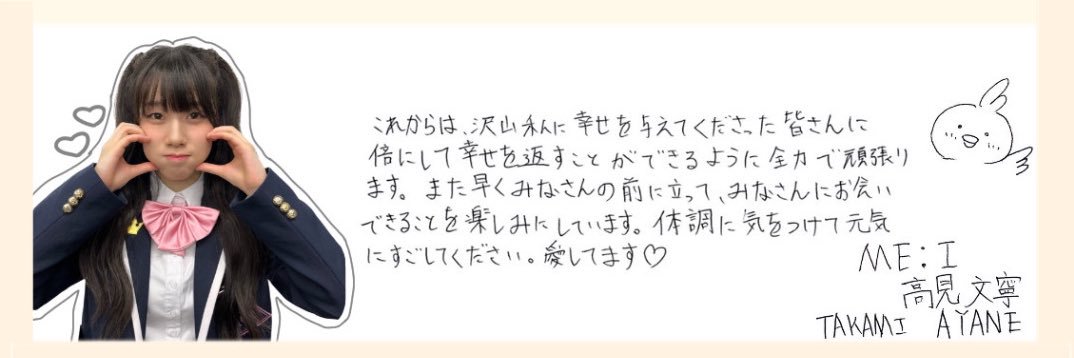 これからは、沢山私に幸せを与えてくださった皆さんに
倍にして幸せを返すことができるように全力で頑張り
ます。また早くみなさんの前に立って、みなさんにお会い
できることを楽しみにしています。体調に気をつけて元気
にすごしてください。愛してます♡
ME:I
高見文寧
TAKAMI AYANE